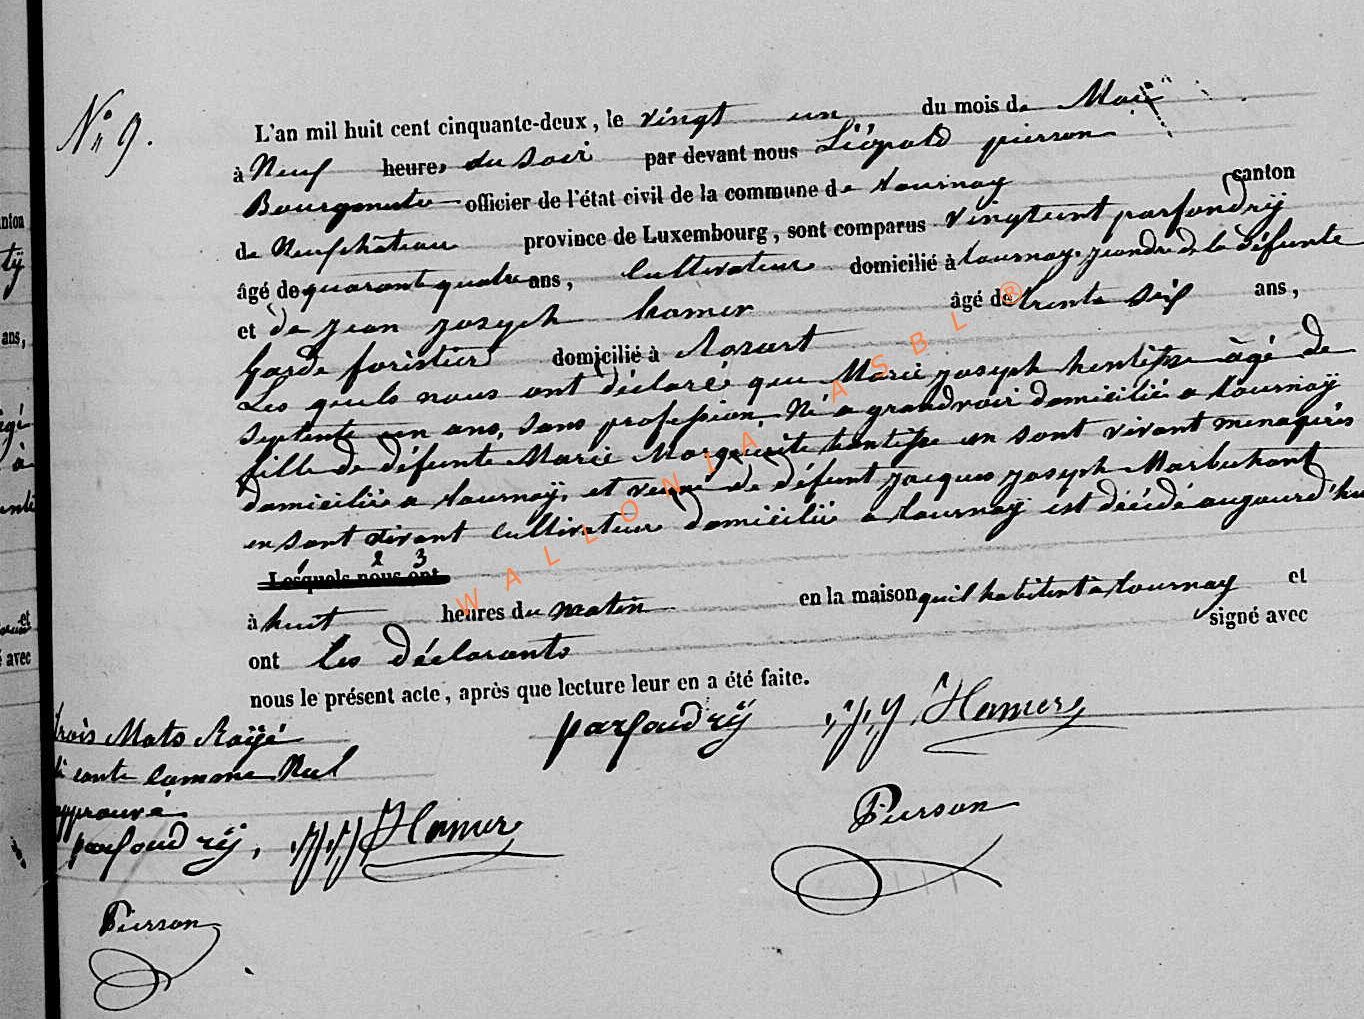 N° 9.
L'an mil huit cent cinquante-deux, le vingt un du mois de Mai
à Neuf heures du soir par devant nous Léopold pierson
Bourgmestre officier de l'état civil de la commune de tournay canton
de Neufchateau province de Luxembourg, sont comparus vingteint parfondrÿ
âgé de quarante quatre ans, Cultivateur domicilié à tournay. jeandre de la défunte
et de jean joseph hamer âgé de trente six ans,
Garde foristier domicilié à Rosart
Les quels nous ont déclaré que Marie joseph hentisse âgé de
septente un ans, sans profession Né a grandvoir domicilié a tournaÿ
fille de défunte Marie Marguerite hentisse en sont vivant menagères
domicilié a tournaÿ, et veuve de défunt jacques joseph Marbehant
en sont vivant cultivateur domicilié a tournaÿ est décédé aujourd'hui
1 2 3
Lesquels nous ont
à huit heures du matin en la maison quil habitent a tournay et
ont les déclarants signé avec
nous le présent acte, après que lecture leur en a été faite.
trois Mots Raÿé
conte comme Nul
approuvé
parfondrÿ J, J, Hamer
parfondrÿ, J, J, Hamer
Pierson
Pierson
WALLONIA ASBL ®
nton
tÿ
ans,
agé
à
et
avec